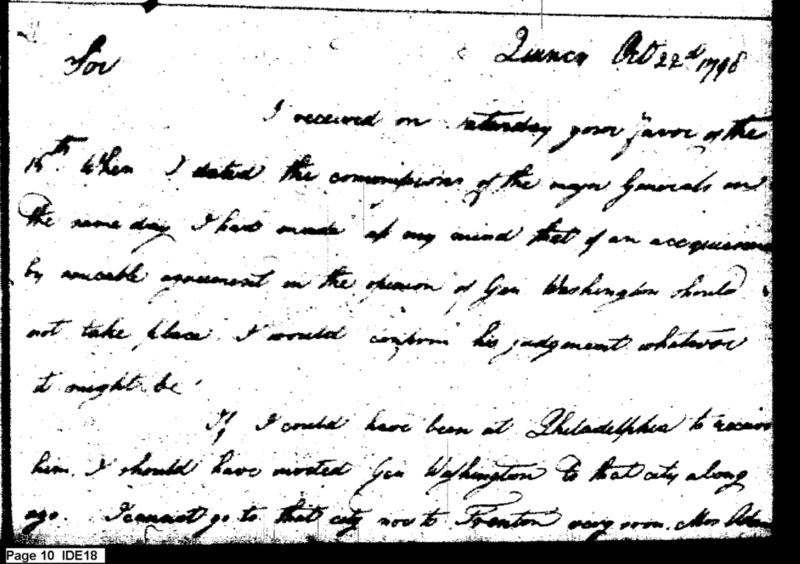 Sir Quincy Oct 22d 1798
I received on saturday your favor of the
15th. When I dated the commissions of the major Generals on
the same day I had made up my mind that if an acquiescence
by amicable agreement in the opinion of Gen Washington should
not take place I would confirm his judgement whatever
it might be
If I could have been at Philadelphia to receive
him, I should have invited Gen Washington to that city along
ago. I cannot go to that city nor to Trenton very soon. Mrs Adams
Page 10 IDE18